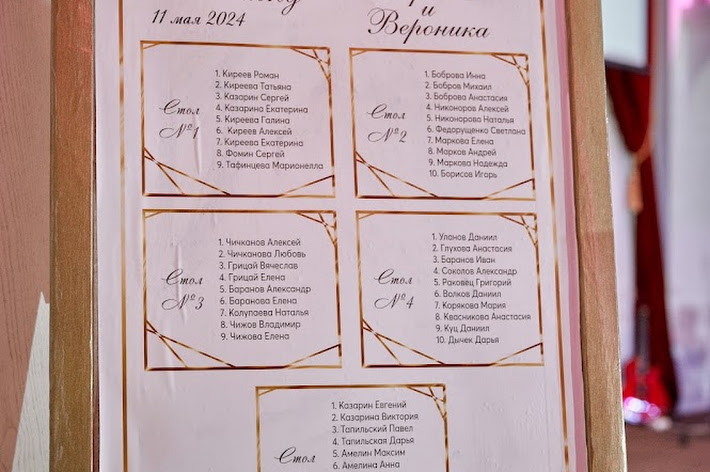 11 мая 2024
и
Вероника
Стол №1
1. Киреев Роман
2. Киреева Татьяна
3. Казарин Сергей
4. Казарина Екатерина
5. Киреева Галина
6. Киреев Алексей
7. Киреева Екатерина
8. Фомин Сергей
9. Тафинцева Марионелла
Стол №2
1. Боброва Инна
2. Бобров Михаил
3. Боброва Анастасия
4. Никоноров Алексей
5. Никонорова Наталья
6. Федорущенко Светлана
7. Маркова Елена
8. Марков Андрей
9. Маркова Надежда
10. Борисов Игорь
Стол №3
1. Чичканов Алексей
2. Чичканова Любовь
3. Грицай Вячеслав
4. Грицай Елена
5. Баранов Александр
6. Баранова Елена
7. Колупаева Наталья
8. Чижов Владимир
9. Чижова Елена
Стол №4
1. Уланов Даниил
2. Глухова Анастасия
3. Баранов Иван
4. Соколов Александр
5. Раковец Григорий
6. Волков Даниил
7. Корякова Мария
8. Квасникова Анастасия
9. Куц Даниил
10. Дычек Дарья
Стол
1. Казарин Евгений
2. Казарина Виктория
3. Тапильский Павел
4. Тапильская Дарья
5. Амелин Максим
6. Амелина Анна